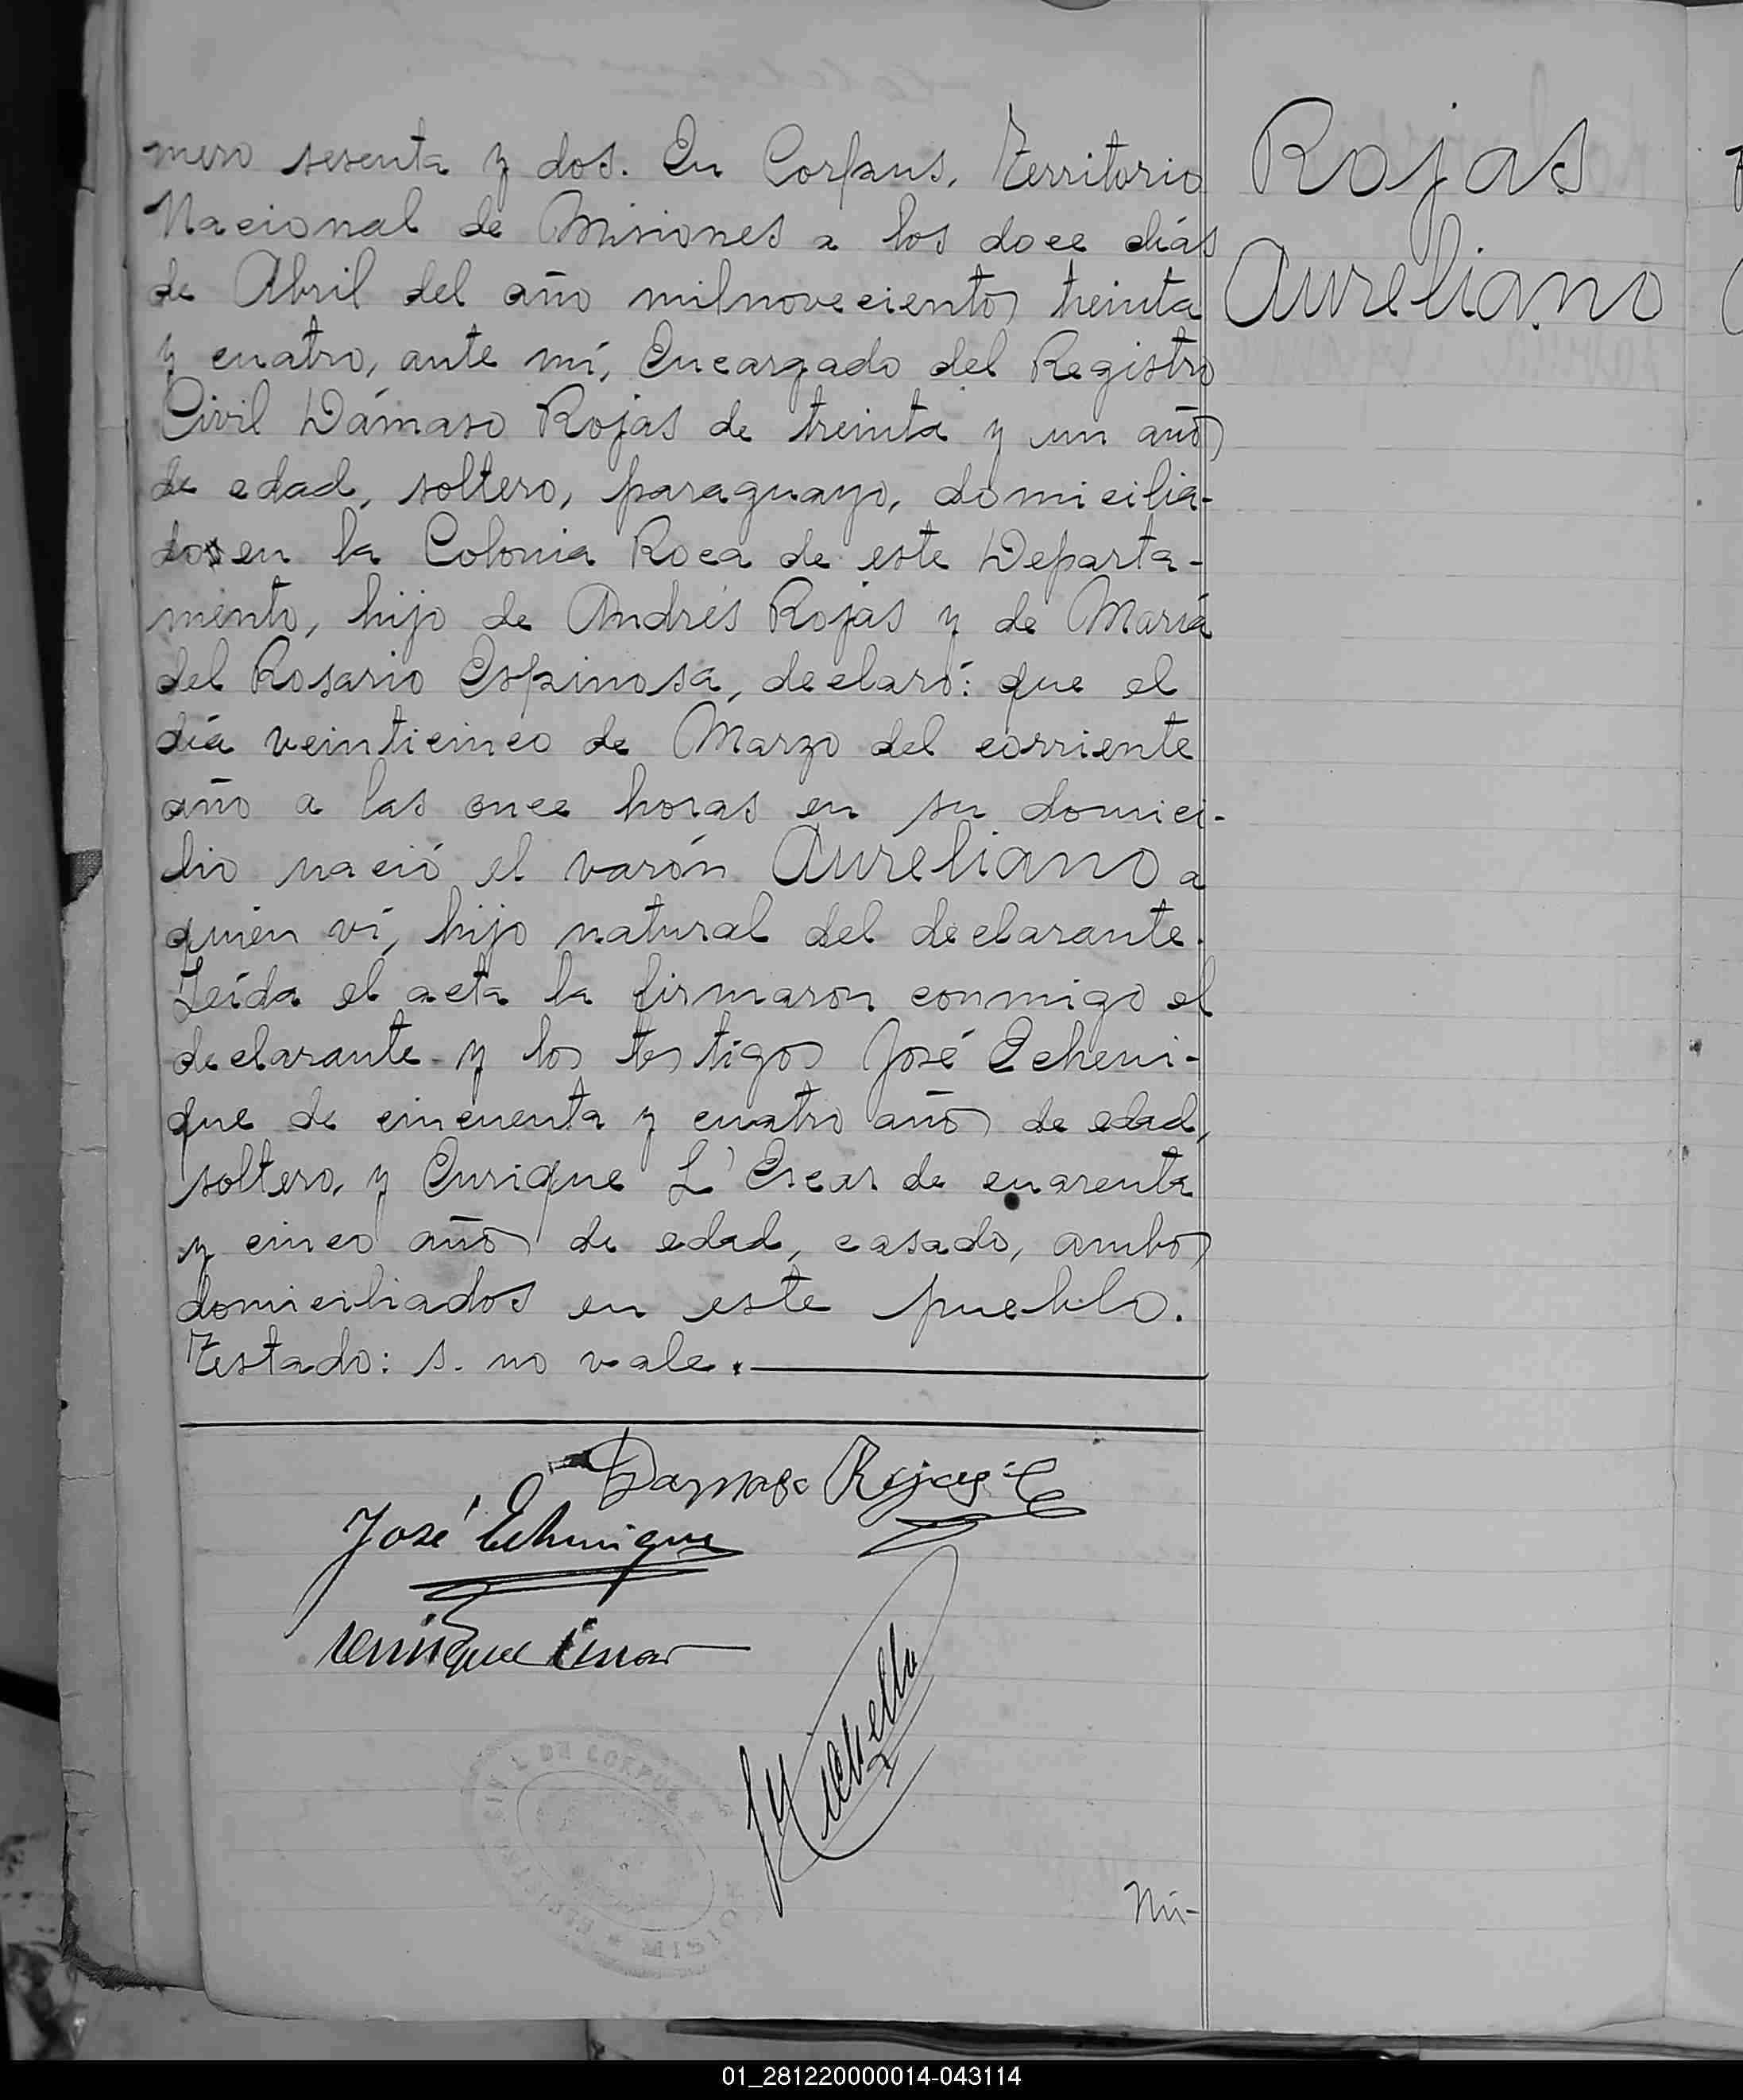 mero sesenta y dos. En Corpus, Territorio
Nacional de Misiones a los doce días
de Abril del año milnovecientos treinta
y cuatro, ante mí, Encargado del Registro
Civil Dámaso Rojas de treinta y un años
de edad, soltero, paraguayo, domicilia-
dos en la Colonia Roca de este Departa-
mento, hijo de Andrés Rojas y de María
del Rosario Espinosa, declaró: que el
día veinticinco de Marzo del corriente
año a las once horas en su domici-
lio nació el varón Aureliano a
quien ví, hijo natural del declarante.
Leída el acta la firmaron conmigo el
declarante y los testigos José Echeni-
que de cincuenta y cuatro años de edad,
soltero, y Enrique L' Escar de cuarenta
y cinco años de edad, casado, ambos
domiciliados en este pueblo.
Testado: s. no vale.
Rojas
Aureliano
Damaso Rojas
José Echenique
Enrique
DE CORPUS
Nú-
01_281220000014-043114